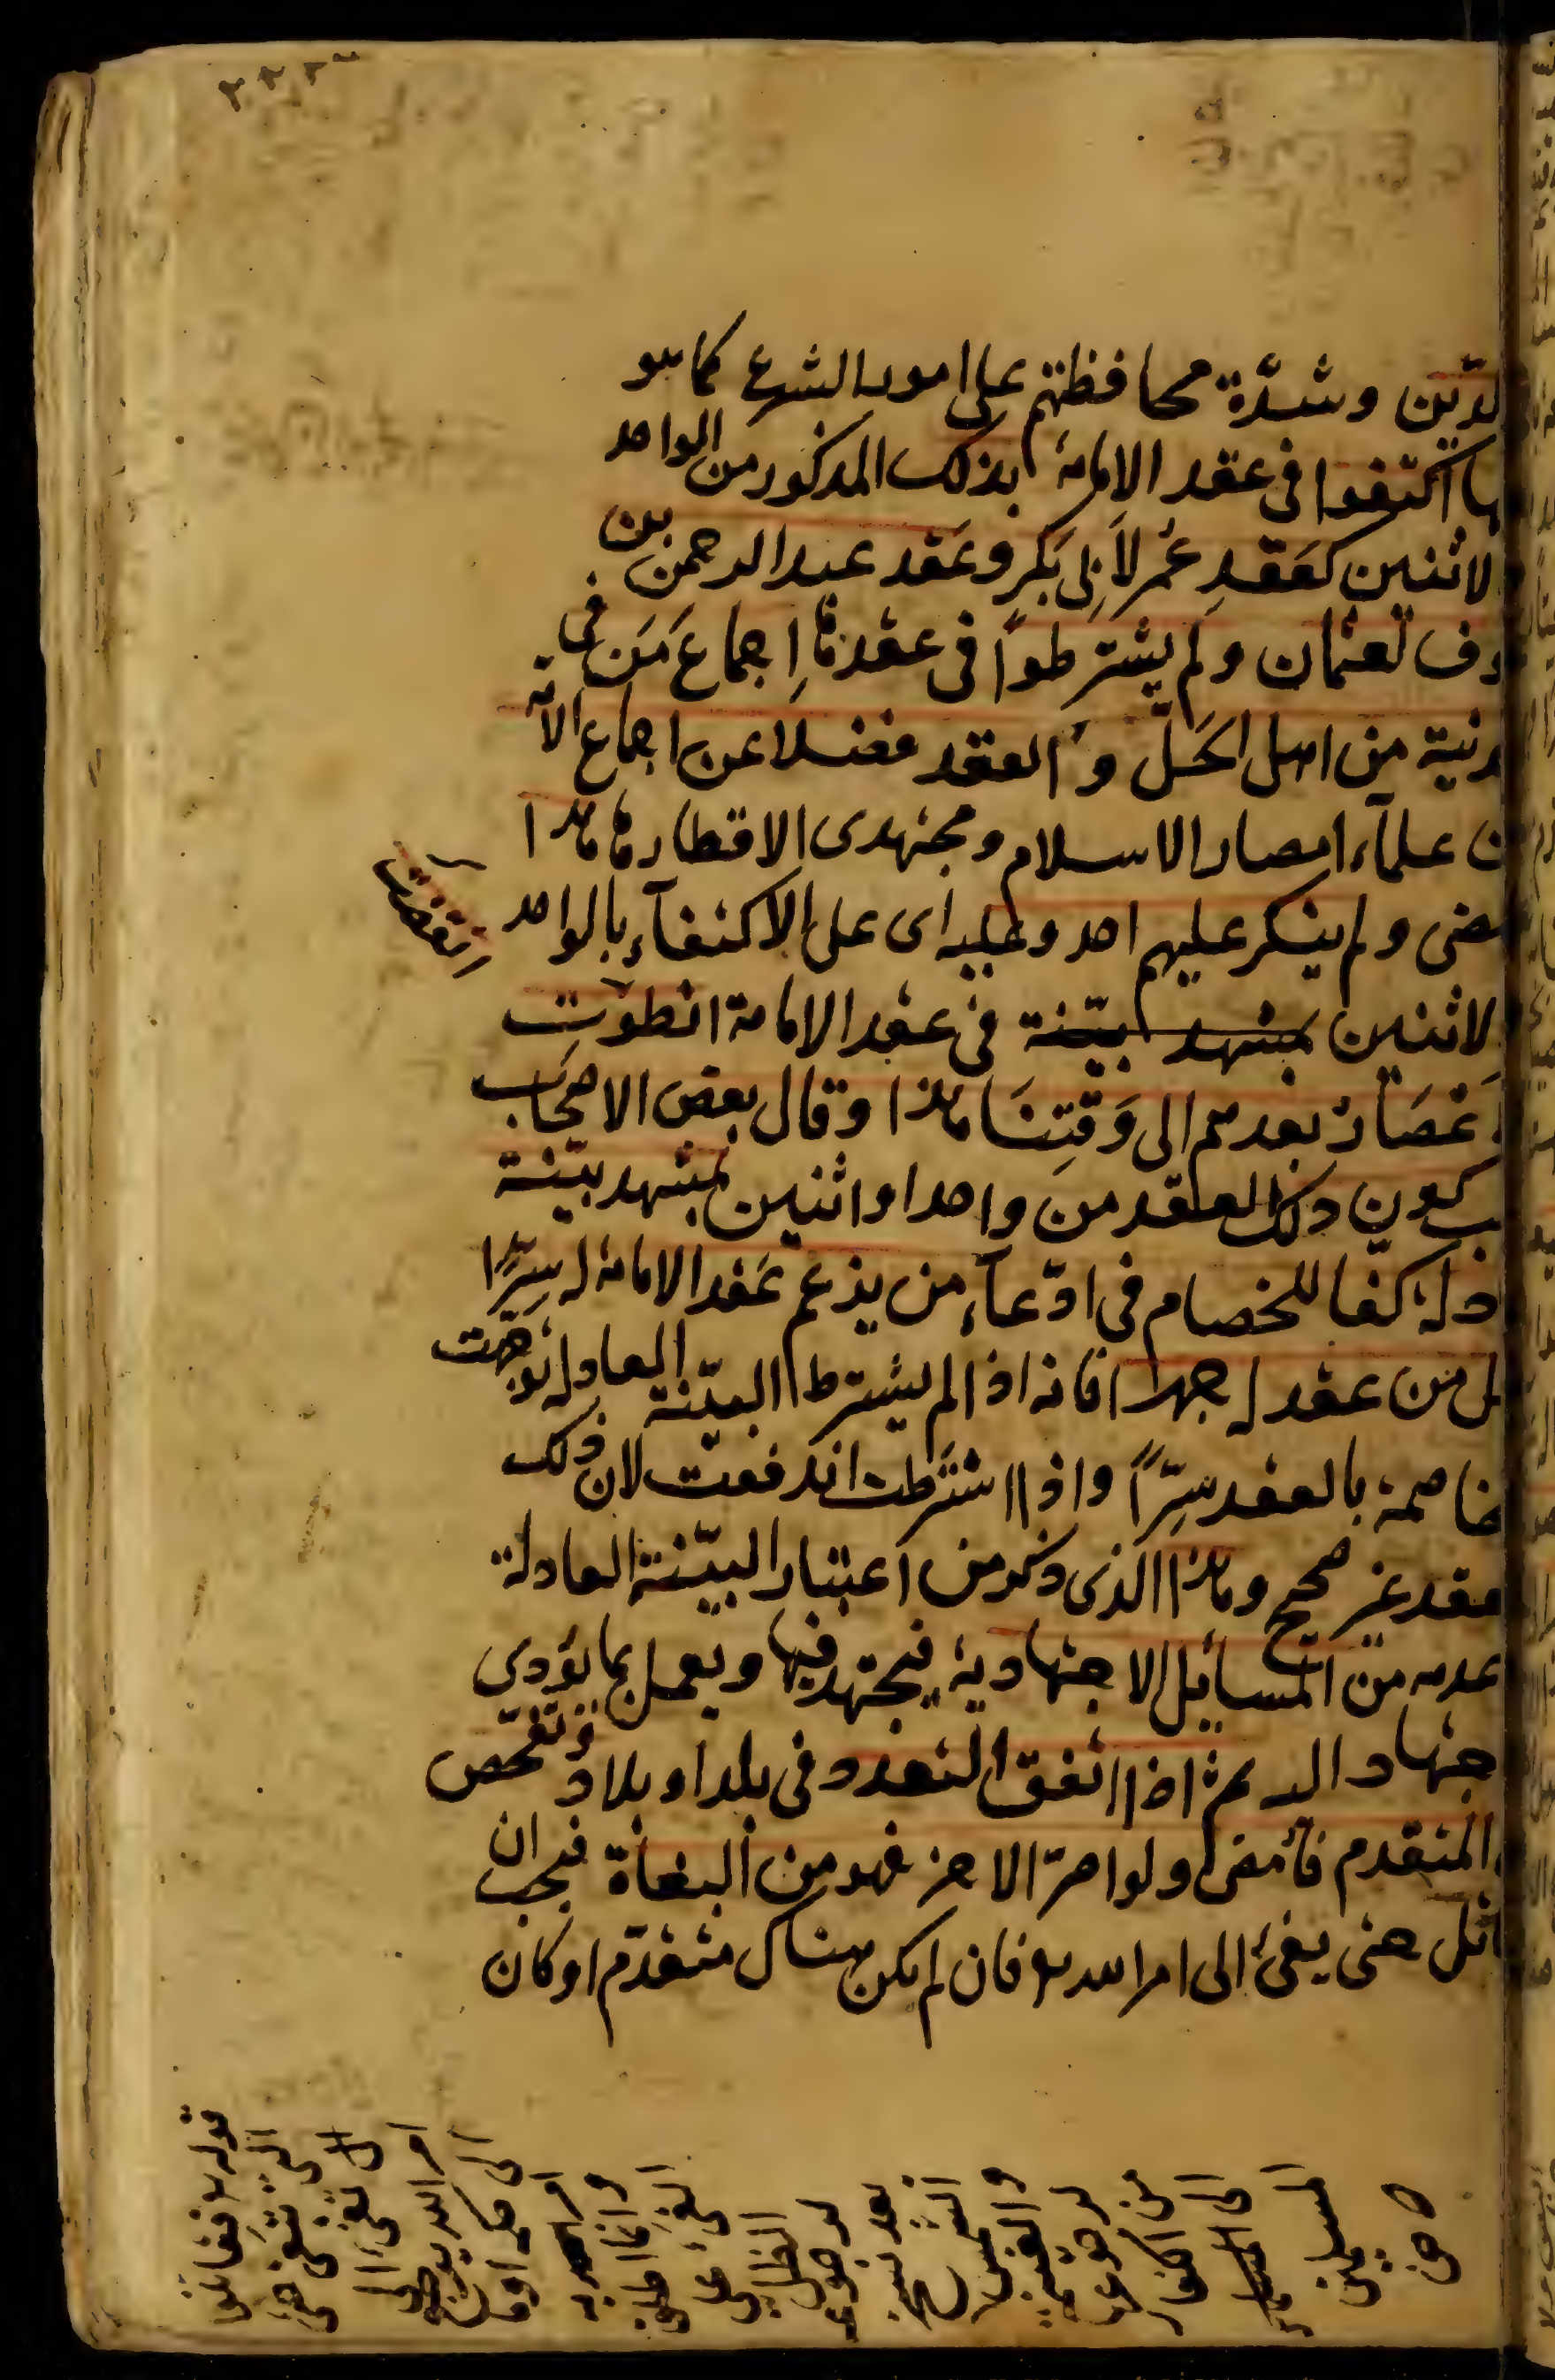 لدّين وشدّة محافظتهم على امور الشرع كما هو
ها اكتفوا فى عقد الإمامة بذلك المذكور من الواحد
لاثنين كعَقدِ عُمر لأَبِى بَكرٍ وعَقد عبد الرحمن بن
وف لعثمان ولم يشترطوا فى عقدها إجماعَ مَن فى
دنية من اهل الحَلّ والعقد فضلا عن اجماع الامّة
ن علمآء امصار الاسلام ومجتهدى الاقطار هذا
ضى ولم ينكر عليهم احد وعليه اى على الاكتفآء بالواحد
لاثنين بمشهد بيّنة فى عقد الامامة انطوَت
عصَار بعدهم الى وَقتِنَا هذا وقال بعض الاصحَاب
ب كون ذلك العقد من واحد او اثنين بمشهد بيّنة
دلة كفا للخصام فى ادّعآء من يزعم عَقد الامامة له سِرًّا
ل من عقد له جهرا فانه اذا لم يشترط البيّنة العادلة توجّهت
خاصمة بالعقد سِرًّا واذا اشتَرطت اندفعت لان ذلك
عقد غير صحيح وهذا الذى ذكر من اعتبار البيّنة العادلة
عدمه من المسائل الاجتهادية فيجتهد فيها ويعمل بما يؤدي
جتهاد اليه ثم اذا اتفق التعدد فى بلد او بلاد تفحّص
المتقدم فأمضى ولو اصرّ الاخر فهو من البغاة فيجب ان
اتل حتى يفئ الى امر الله فان لم يكن هناك متقدّم او كان
انقضت
قوله فقاتلوا
التى تبغى حتى
تفئ الى
امر الله
الى حكمه او
ما امر به
وانما اطلق
الفئ على
الظل
لرجوعه
بعد نسخ
الشمس
والغنيمة
لرجوعها
من الكفار
الى
المسلمين